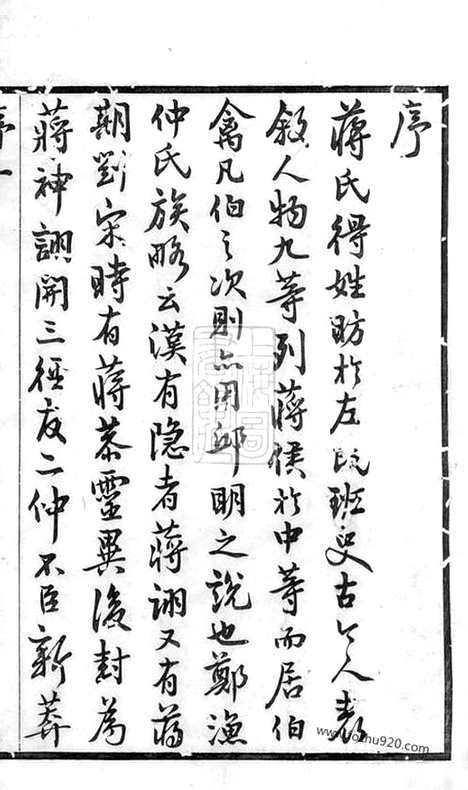 序
蔣氏得姓昉於左氏班史古今人表
敘人物九等列蔣侯於中等而居伯
禽凡伯之次則亦用邱明之說也鄭漁
仲氏族略云漢有隱者蔣詡又有蔣
期劉宋時有蔣恭靈異後封為
蔣神詡開三徑友二仲不臣新莽
序一
www.foshu920.com